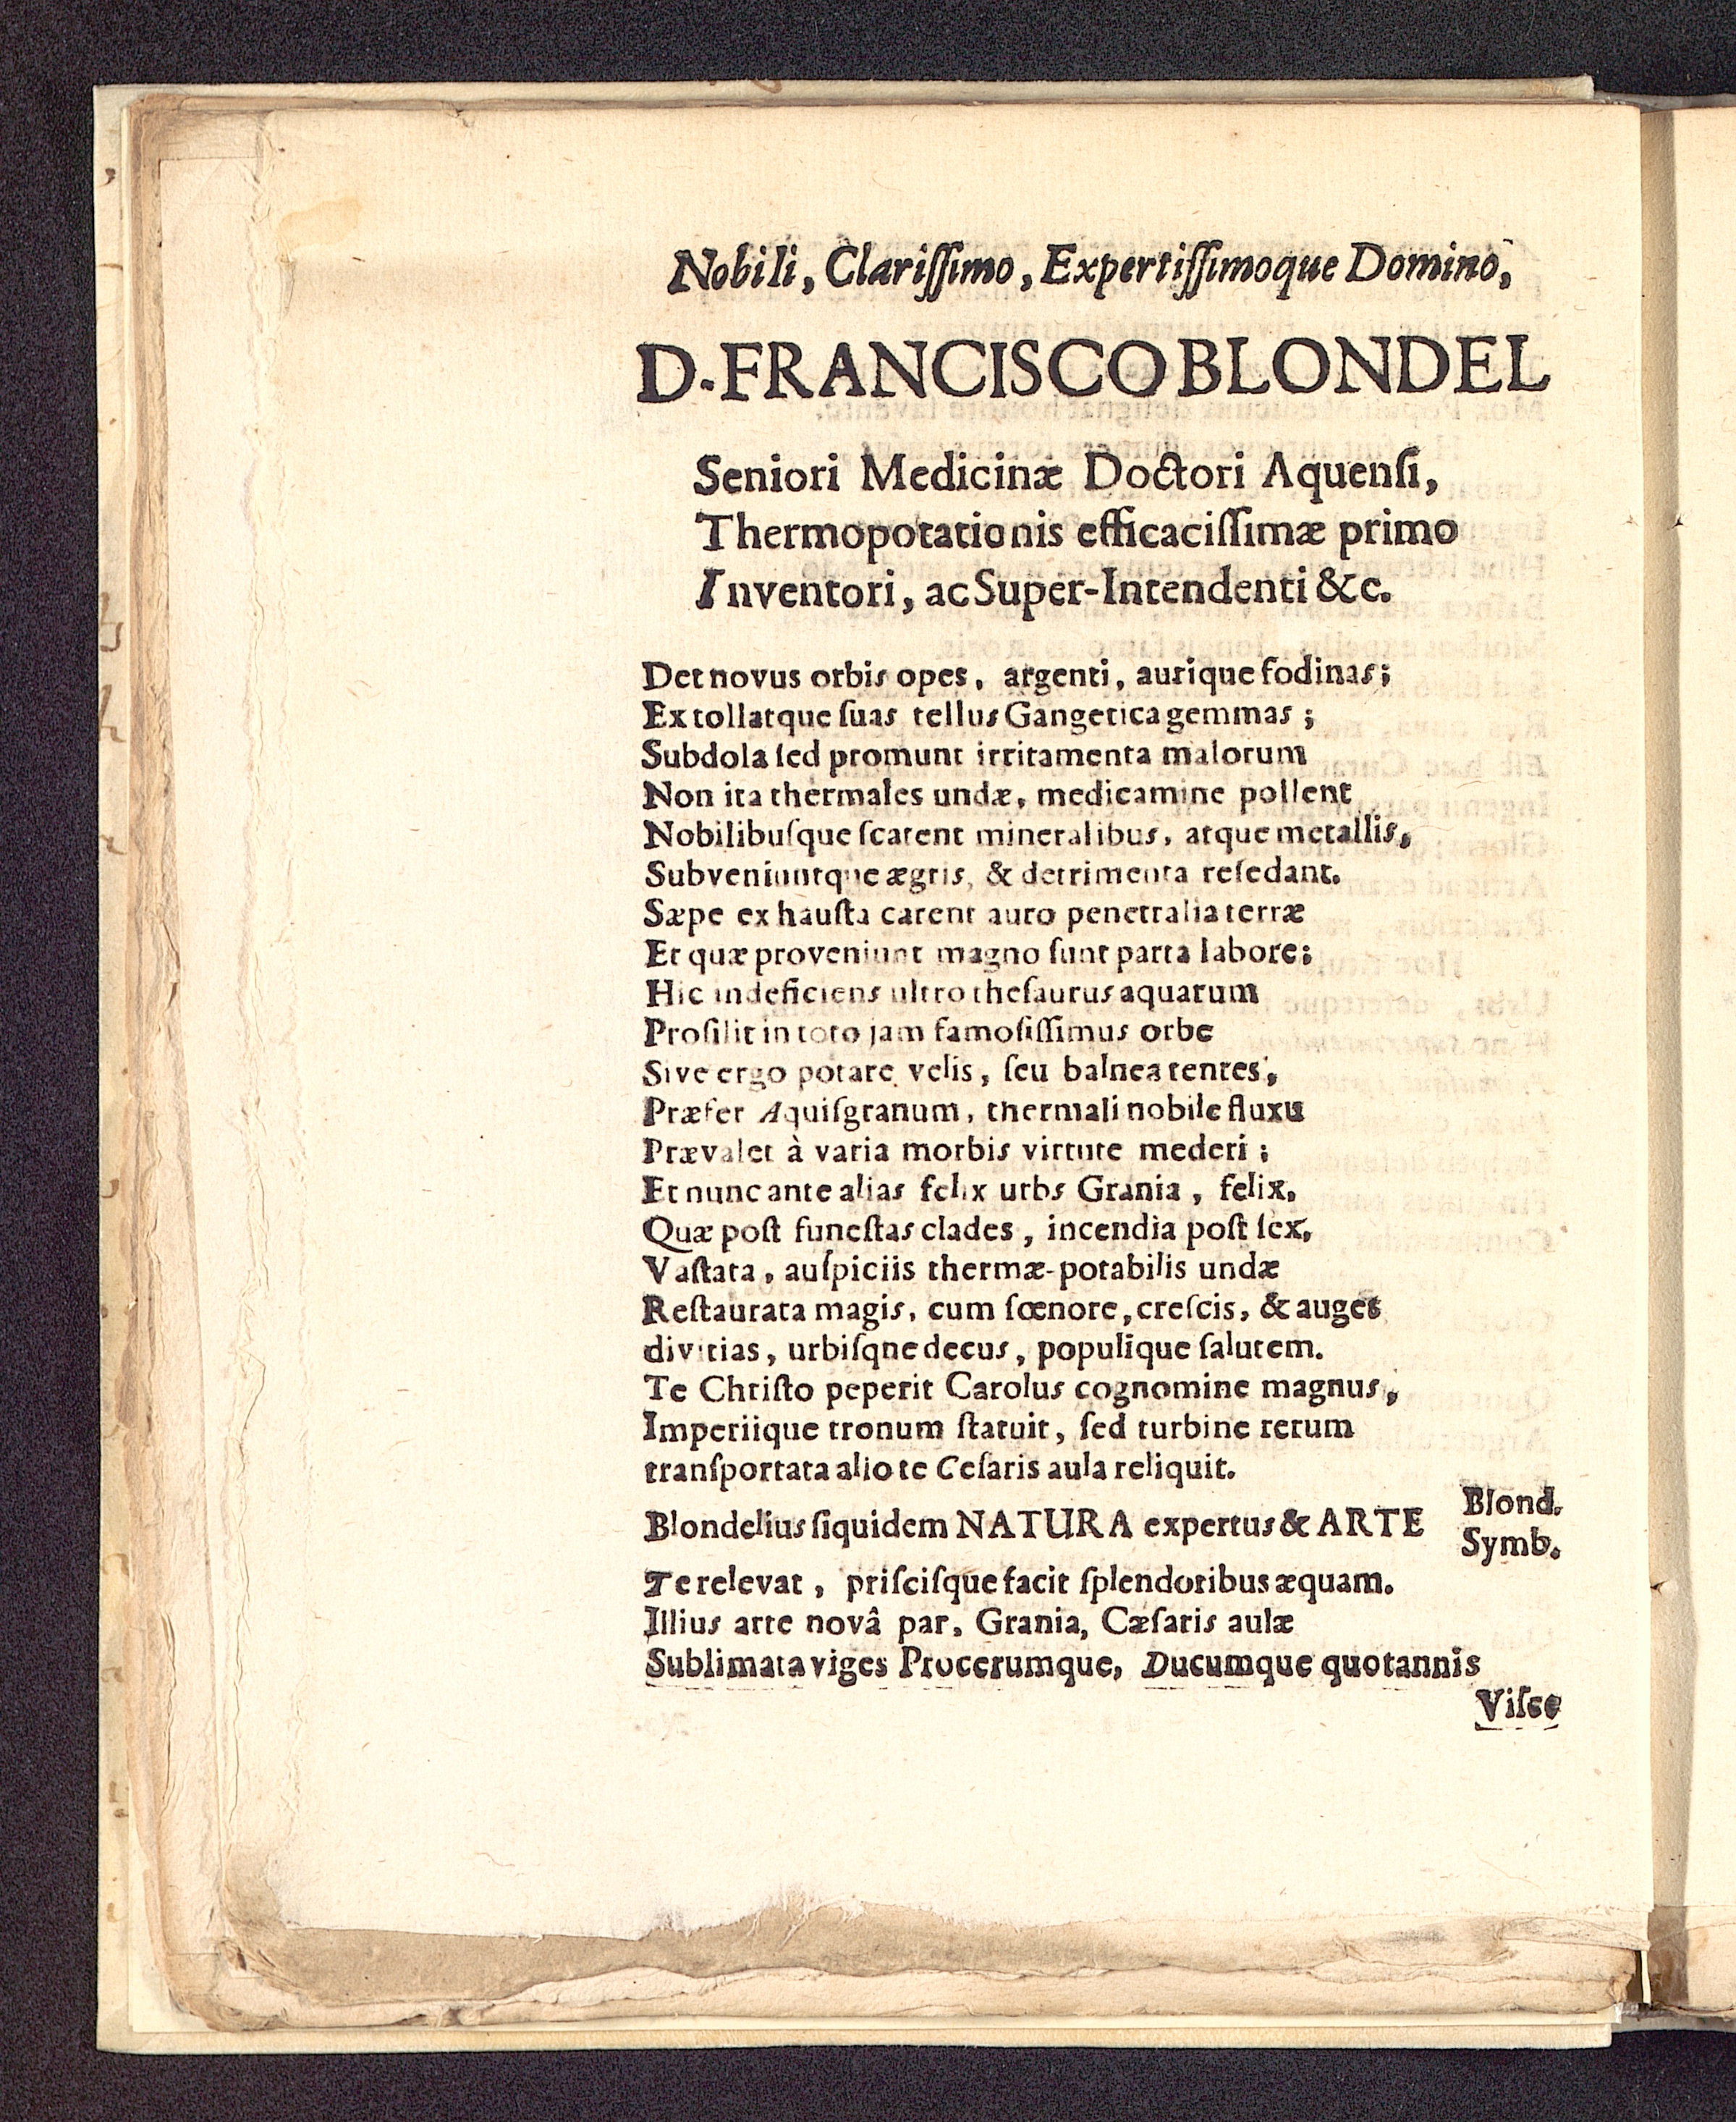 Nobili, Clariſſimo, Expertiſſimoque Domino,
D. FRANCISCO BLONDEL
Seniori Medicinæ Doctori Aquenſi,
Thermopotationis efficaciſſimæ primo
Inventori, ac Super-Intendenti &c.
Det novus orbis opes, argenti, aurique fodinas;
Extollatque ſuas tellus Gangetica gemmas;
Subdola ſed promunt irritamenta malorum
Non ita thermales undæ, medicamine pollent
Nobilibuſque ſcatent mineralibus, atque metallis,
Subveniuntque ægris, & detrimenta reſedant.
Sæpe exhauſta carent auro penetralia terræ
Et quæ proveniunt magno ſunt parta labore;
Hic indeficiens ultro theſaurus aquarum
Proſilit in toto jam famoſiſſimus orbe
Sive ergo potare velis, ſeu balnea tentes,
Præfer Aquiſgranum, thermali nobile fluxu
Prævalet à varia morbis virtute mederi;
Et nunc ante alias felix urbs Grania, felix,
Quæ poſt funeſtas clades, incendia poſt ſex,
Vaſtata, auſpiciis thermæ-potabilis undæ
Reſtaurata magis, cum fœnore, creſcis, & auges
divitias, urbiſqne decus, populique ſalutem.
Te Chriſto peperit Carolus cognomine magnus,
Imperiique tronum ſtatuit, ſed turbine rerum
tranſportata alio te Ceſaris aula reliquit.
Blondelius ſiquidem NATURA expertus & ARTE Blond.
Symb.
Te relevat, priſciſque facit ſplendoribus æquam.
Illius arte novâ par, Grania, Cæſaris aulæ
Sublimata viges Procerumque, Ducumque quotannis
Viſce